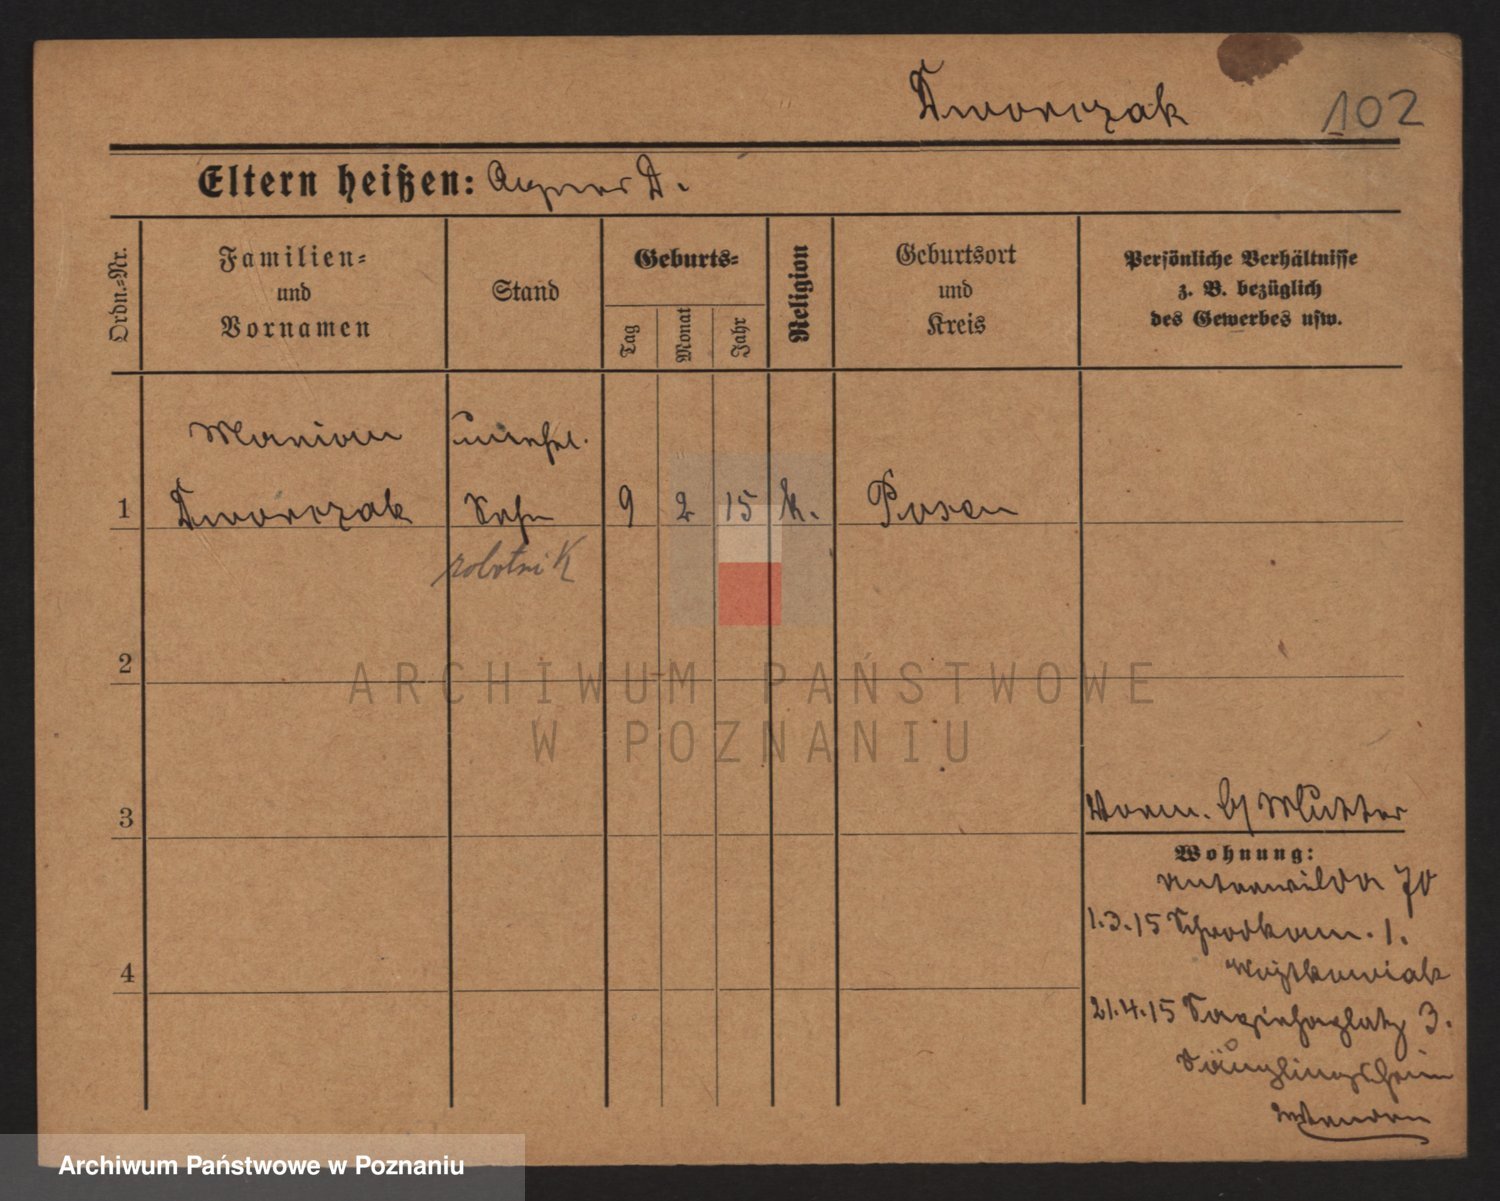 Dworczak 102
Eltern heißen: Agnes D.
Ordn.-Nr.
Familien-
und
Vornamen
Stand
Geburts-
Tag
Monat
Jahr
Religion
Geburtsort
und
Kreis
Persönliche Verhältnisse
z. B. bezüglich
des Gewerbes usw.
Marian unehel.
1 Dworczak Sohn 9 2 15 k. Posen
robotnik
2
ARCHIWUM PAŃSTWOWE
W POZNANIU
3
Vorm. Mutter
Wohnung:
Unterwilda 70
1.3.15 1.
Wojtkowiak
21.4.15 Sapiehaplatz 3.
Säuglingsheim
4
Archiwum Państwowe w Poznaniu